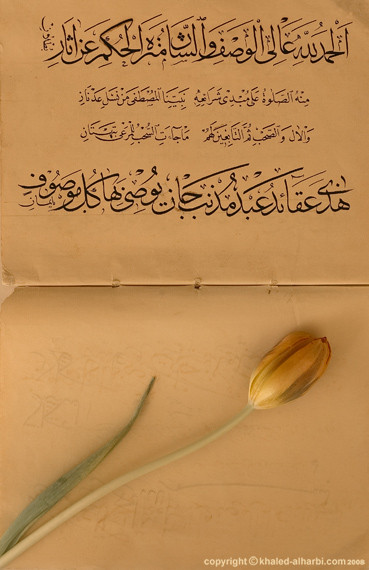 الحمد لله عالي الوصف والشان منزه الحكم عن آثار
منه الصلوة على مبدى شرائعه نبينا المصطفى من نسل عدنان
والآل والصحب ثم التابعين لهم ما جاءت السحب
هذى عقائد عبد مذنب جان يوصى بها كل موصوف
copyright © khaled-alharbi.com 2008